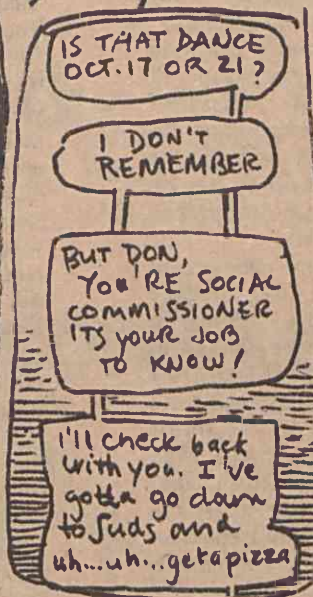 IS THAT DANCE
OCT. 17 OR 21?
I DON'T
REMEMBER
BUT DON,
YOU'RE SOCIAL
COMMISSIONER
ITS YOUR JOB
TO KNOW!
I'll check back
with you. I've
gotta go down
to Suds and
uh...uh...get a pizza